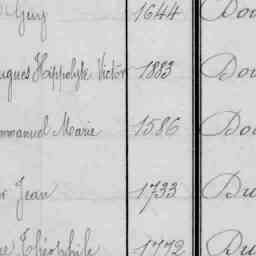 Guy 1644 Dou
ugues Hippolyte Victor 1883 Dou
mmanuel Marie 1586 Dou
Jean 1733 Du
Théophile 1772 Du